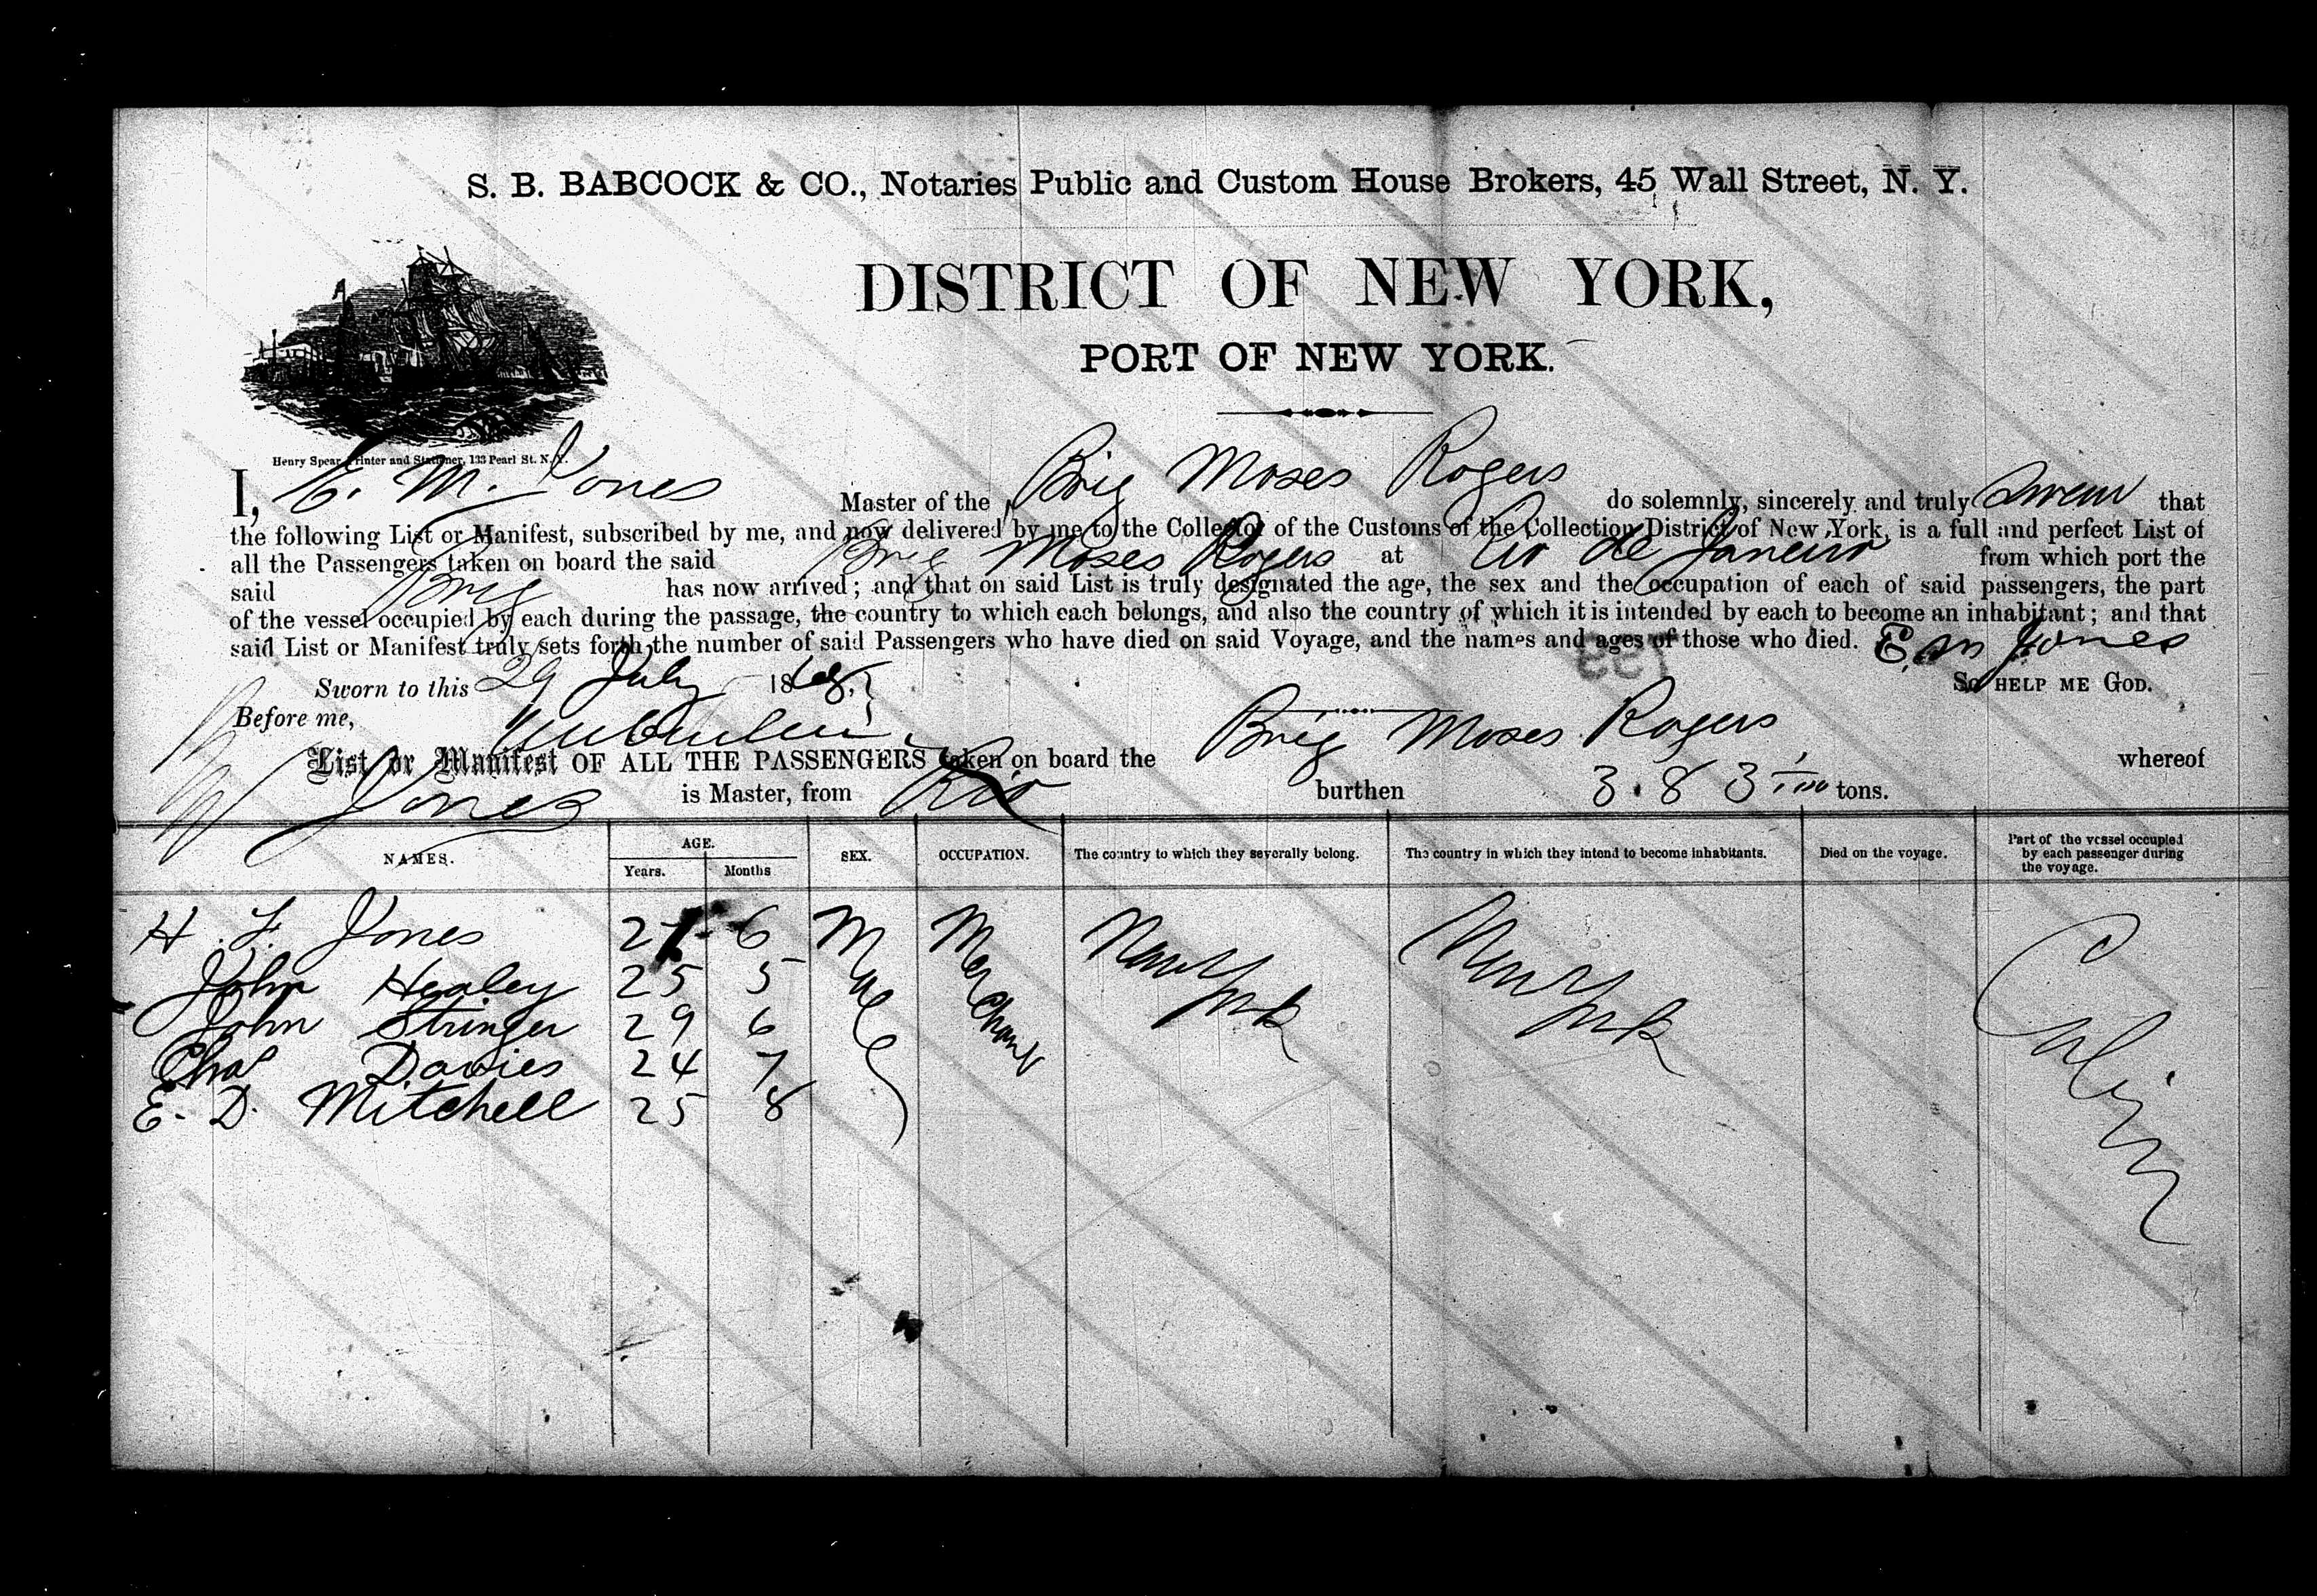 S. B. BABCOCK & CO., Notaries Public and Custom House Brokers, 45 Wall Street, N. Y.
DISTRICT OF NEW YORK,
PORT OF NEW YORK.
Henry Spear, Printer and Stationer, 133 Pearl St. N. Y.
I, E. M. Jones Master of the Brig Moses Rogers do solemnly, sincerely and truly Swear that
the following List or Manifest, subscribed by me, and now delivered by me to the Collector of the Customs of the Collection District of New York, is a full and perfect List of
all the Passengers taken on board the said Brig Moses Rogers at Rio de Janeiro from which port the
said Brig has now arrived; and that on said List is truly designated the age, the sex and the occupation of each of said passengers, the part
of the vessel occupied by each during the passage, the country to which each belongs, and also the country of which it is intended by each to become an inhabitant; and that
said List or Manifest truly sets forth the number of said Passengers who have died on said Voyage, and the names and ages of those who died. E. M Jones
Sworn to this 29 July 1868, SO HELP ME GOD.
Before me,
List or Manifest OF ALL THE PASSENGERS taken on board the Brig Moses Rogers whereof
Jones is Master, from Rio burthen 383 tons.
NAMES. AGE. SEX. OCCUPATION. The country to which they severally belong. The country in which they intend to become inhabitants. Died on the voyage. Part of the vessel occupied by each passenger during the voyage.
Years. Months
H. F. Jones 27 6 Male Merchant New York New York Cabin
John Healey 25 5
John Stringer 29 6
Chas Davies 24 7
E. D. Mitchell 25 8